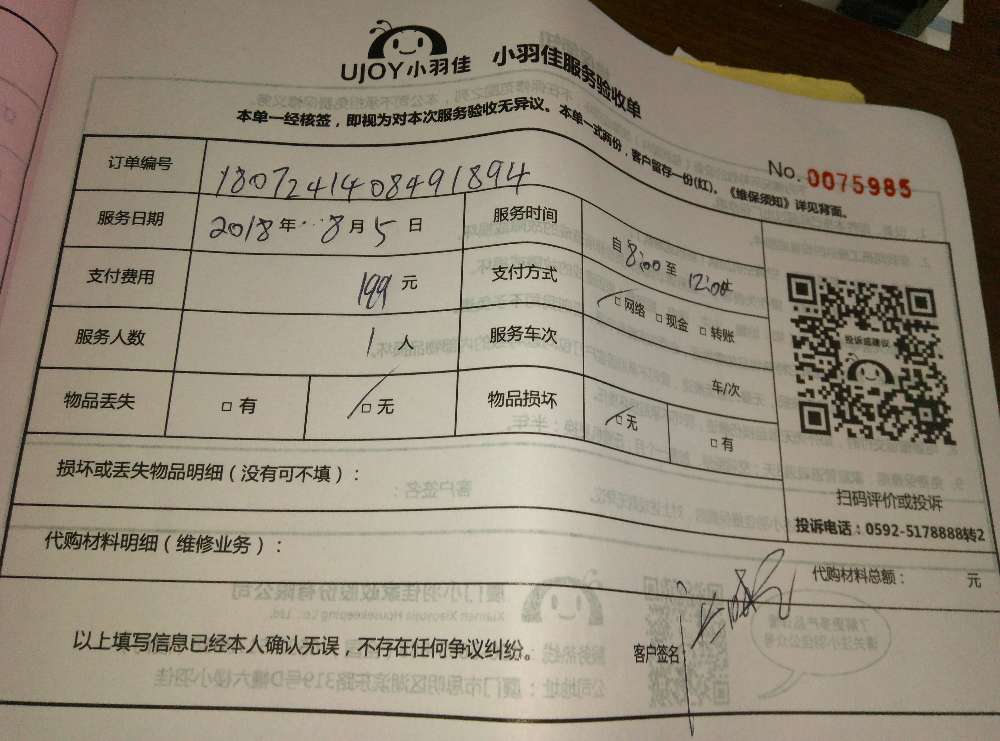 UJOY小羽佳 小羽佳服务验收单
本单一经核签，即视为对本次服务验收无异议。本单一式两份，客户留存一份(红)。《维保须知》详见背面。
No. 0075985
订单编号 1807241408491894
服务日期 2018年 8月5日 服务时间 自8:00至12:00
支付费用 199元 支付方式 □网络 □现金 □转账
服务人数 1人 服务车次 车/次
物品丢失 □有 □无 物品损坏 □无 □有
投诉或建议
扫码评价或投诉
投诉电话：0592-5178888转2
损坏或丢失物品明细（没有可不填）：
代购材料明细（维修业务）：
代购材料总额： 元
以上填写信息已经本人确认无误，不存在任何争议纠纷。
客户签名